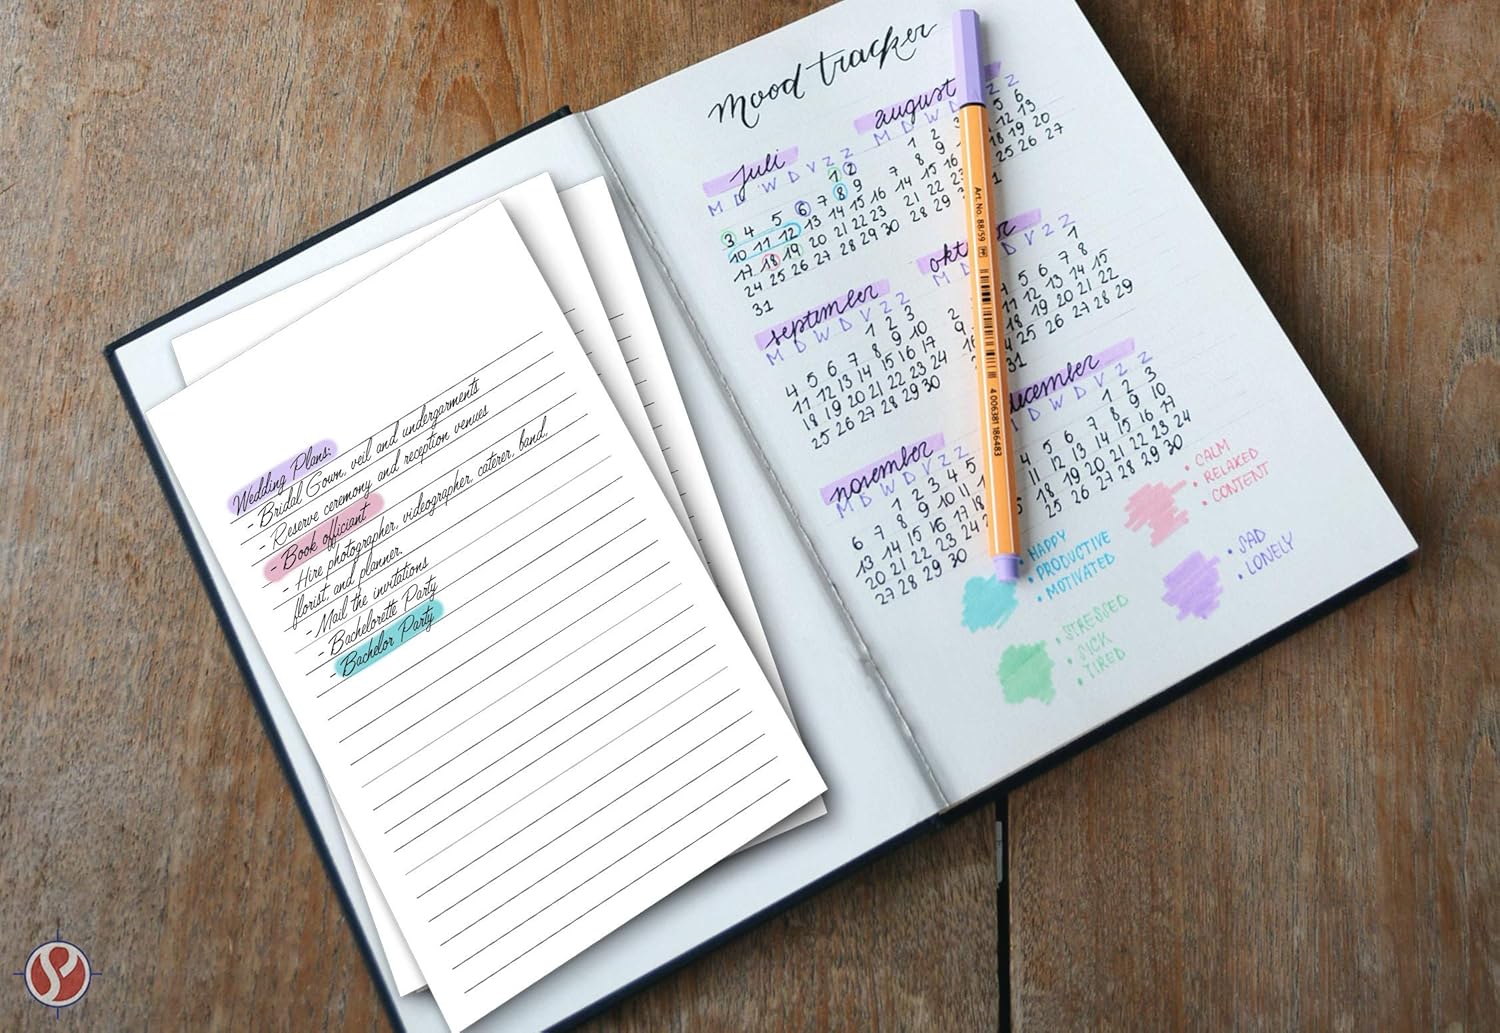 Wedding Plans:
- Bridal Gown, veil and undergarments
- Reserve ceremony and reception venues
- Book officiant
- Hire photographer, videographer, caterer, band,
florist, and planner.
- Mail the invitations
- Bachelorette Party
- Bachelor Party
mood tracker
juli
M D W D V Z Z
1 2
3 4 5 6 7 8 9
10 11 12 13 14 15 16
17 18 19 20 21 22 23
24 25 26 27 28 29 30
31
august
M D W Z
1 2 3 5 6
7 8 9 12 13
14 15 16 18 19 20
21 22 23 25 26 27
28 29 30
september
M D W D V Z Z
1 2 3
4 5 6 7 8 9 10
11 12 13 14 15 16 17
18 19 20 21 22 23 24
25 26 27 28 29 30
M D V Z Z
1
2 5 6 7 8
9 11 12 13 14 15
16 18 19 20 21 22
25 26 27 28 29
31
november
M D W D V Z Z
1 2 3 4 5
6 7 8 9 10 11
13 14 15 16 17 18
20 21 22 23 24
27 28 29 30
december
D W D V Z Z
1 2 3
4 5 6 7 8 9 10
11 12 13 14 15 16 17
18 19 20 21 22 23 24
25 26 27 28 29 30
Art. No. 88/59
4 006381 186483
• CALM
• RELAXED
• CONTENT
HAPPY
• PRODUCTIVE
• MOTIVATED
• SAD
• LONELY
• STRESSED
• SICK
• TIRED